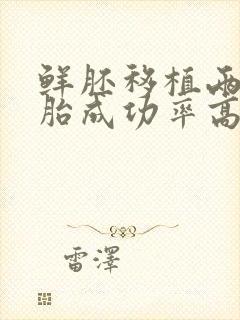 鲜胚移植两
胎成功率高
雷澤